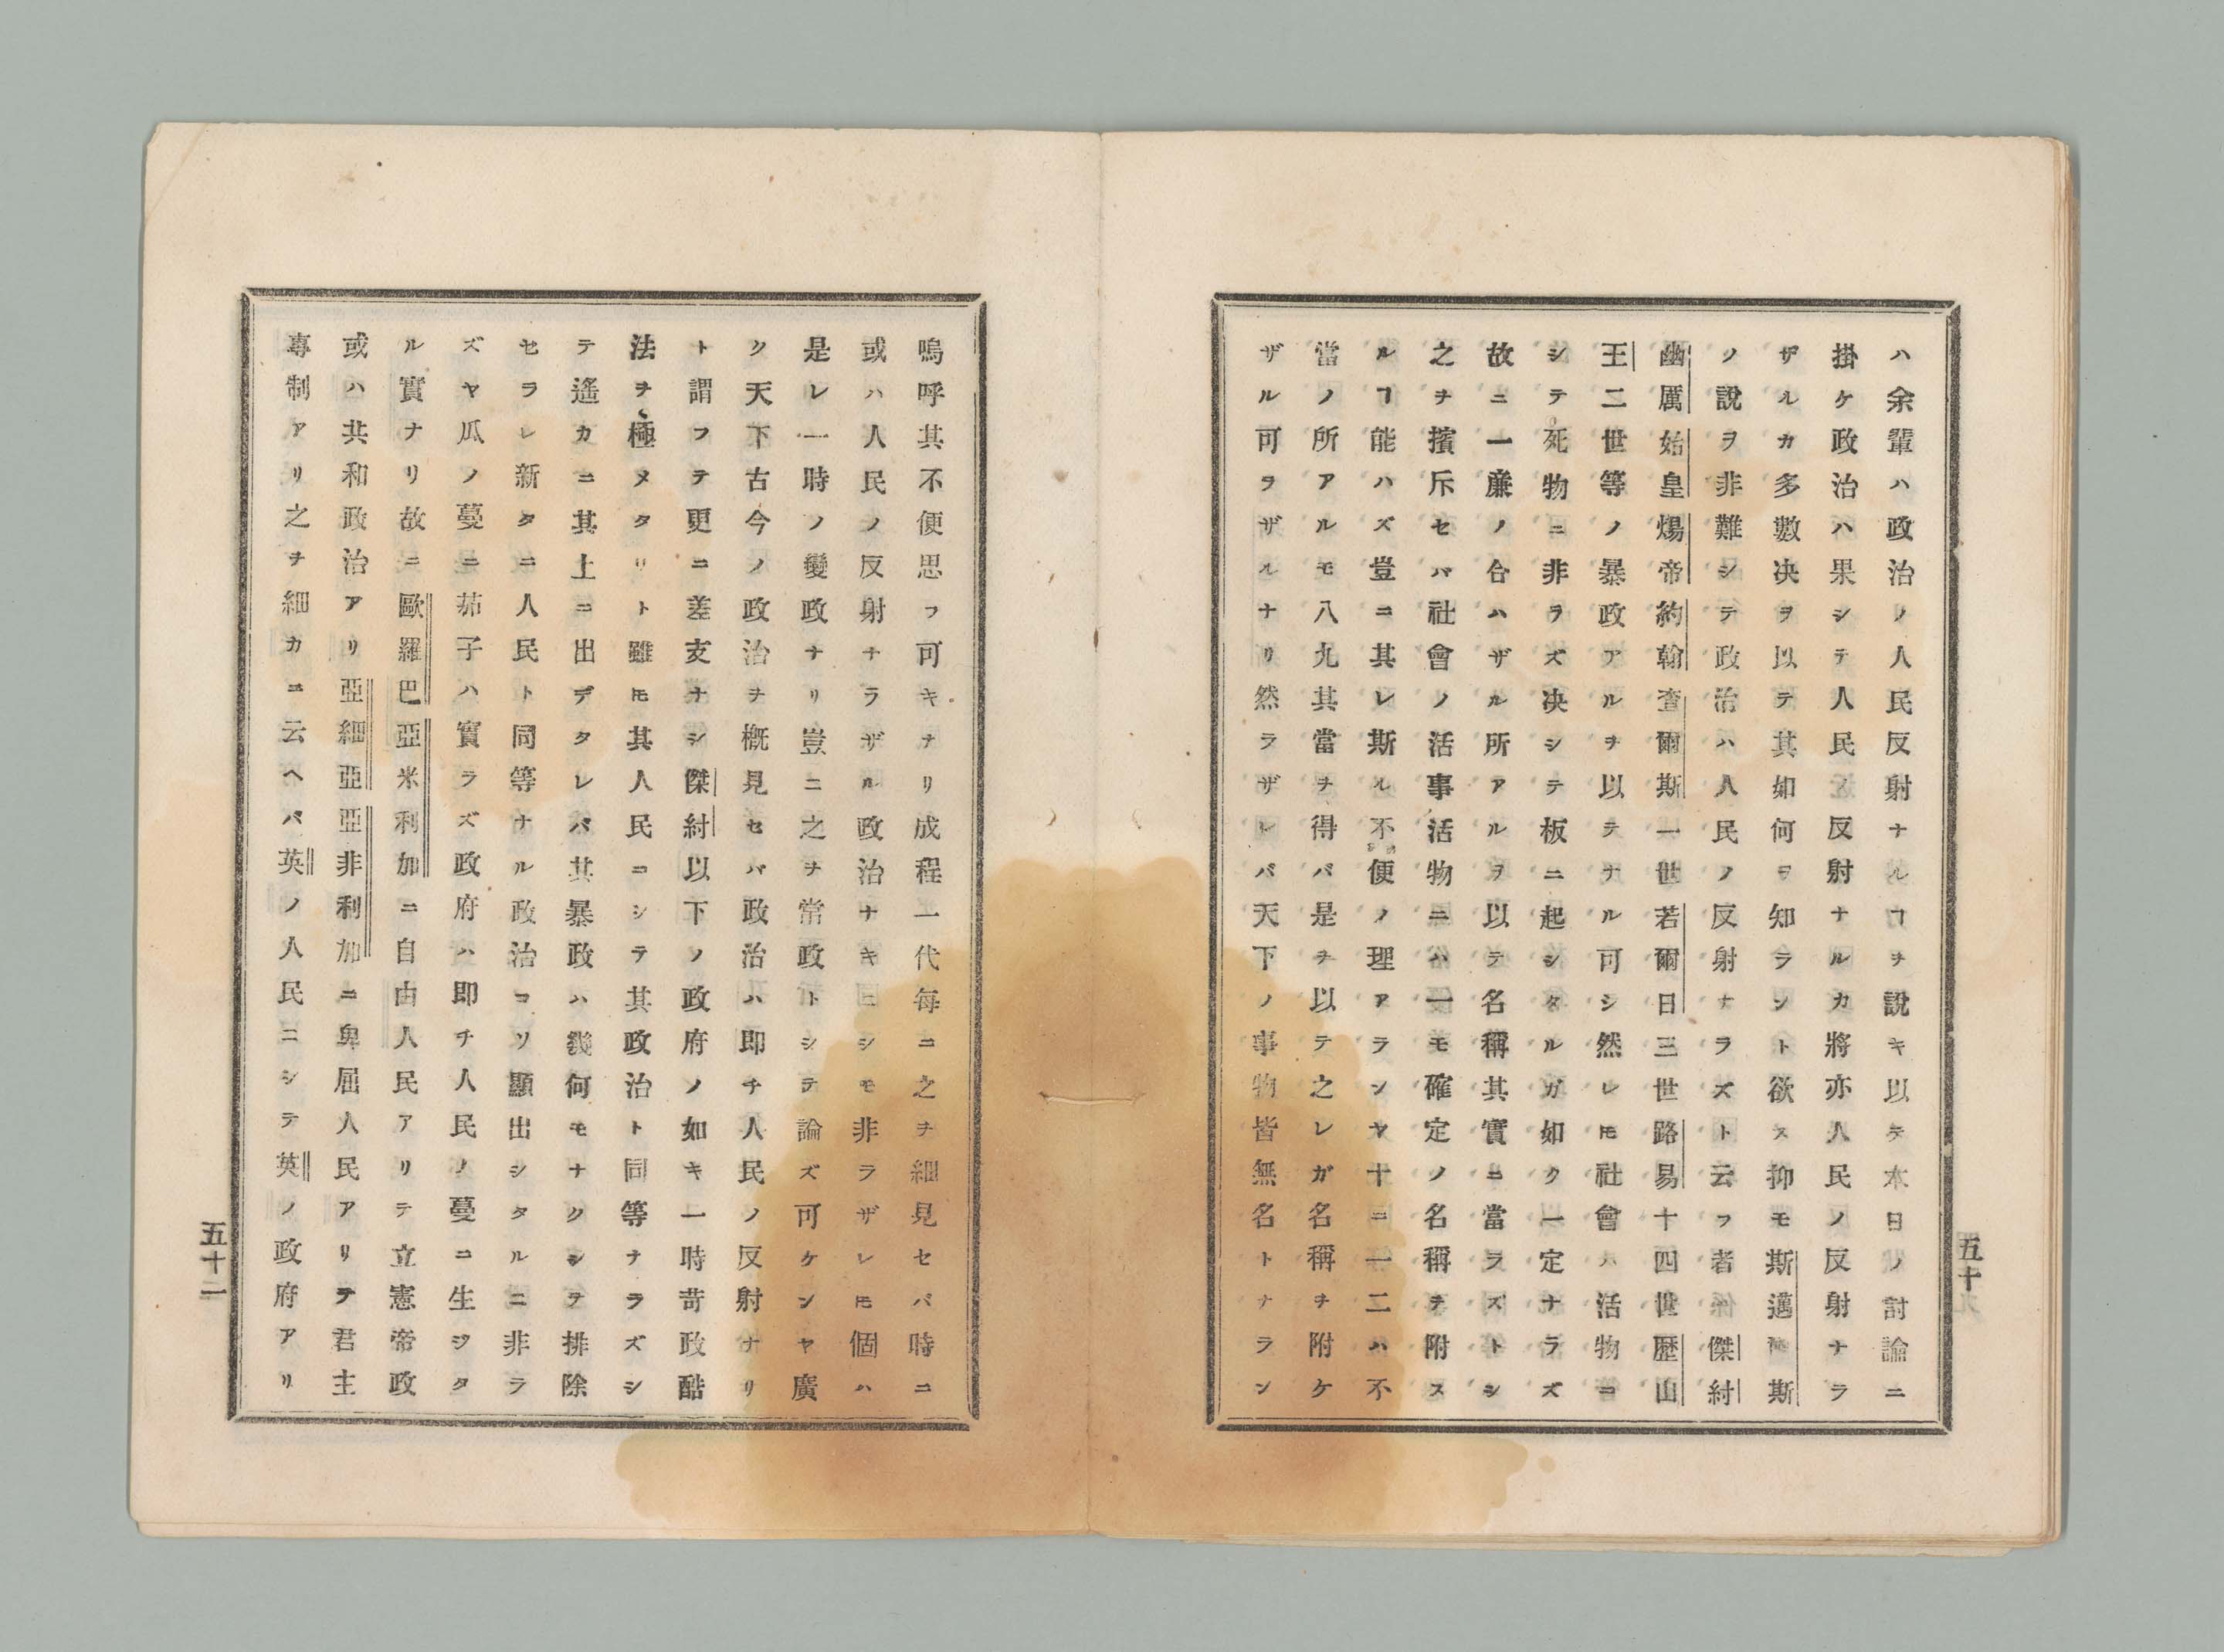 ハ余輩ハ政治ノ人民反射ナルヿヲ說キ以テ本日ノ討論ニ
掛ケ政治ハ果シテ人民ノ反射ナルカ將亦人民ノ反射ナラ
ザルカ多數决ヲ以テ其如何ヲ知ラント欲ス抑モ斯邁斯
ノ說ヲ非難シテ政治ハ人民ノ反射ナラズト云フ者ハ傑紂
幽厲始皇煬帝約翰査爾斯一世若爾日三世路易十四世歴山
王二世等ノ暴政アルヲ以テナル可シ然レモ社會ハ活物ニ
シテ死物ニ非ラズ决シテ板ニ起シタルガ如ク一定ナラズ
故ニ一廉ノ合ハザル所アルヲ以テ名稱其實ニ當ラズトシ
之ヲ擯斥セバ社會ノ活事活物ニハ一モ確定ノ名稱ヲ附ス
ルヿ能ハズ豈ニ其レ斯ル不便ノ理アランヤ十ニ一二ハ不
當ノ所アルモ八九其當ヲ得バ是ヲ以テ之レガ名稱ヲ附ケ
ザル可ラザルナリ然ラザレバ天下ノ事物皆無名トナラン
五十
嗚呼其不便思フ可キナリ成程一代每ニ之ヲ細見セバ時ニ
或ハ人民ノ反射ナラザル政治ナキニシモ非ラザレモ個ハ
是レ一時ノ變政ナリ豈ニ之ヲ常政トシテ論ズ可ケンヤ廣
ク天下古今ノ政治ヲ概見セバ政治ハ即チ人民ノ反射ナリ
ト謂フテ更ニ差支ナシ傑紂以下ノ政府ノ如キ一時苛政酷
法ヲ極メタリト雖モ其人民ニシテ其政治ト同等ナラズシ
テ遙カニ其上ニ出デタレバ其暴政ハ幾何モナクシテ排除
セラレ新タニ人民ト同等ナル政治コソ顯出シタルニ非ラ
ズヤ瓜ノ蔓ニ茄子ハ實ラズ政府ハ即チ人民ノ蔓ニ生ジタ
ル實ナリ故ニ歐羅巴亞米利加ニ自由人民アリテ立憲帝政
或ハ共和政治アリ亞細亞亞非利加ニ卑屈人民アリテ君主
專制アリ之ヲ細カニ云ヘバ英ノ人民ニシテ英ノ政府アリ
五十二